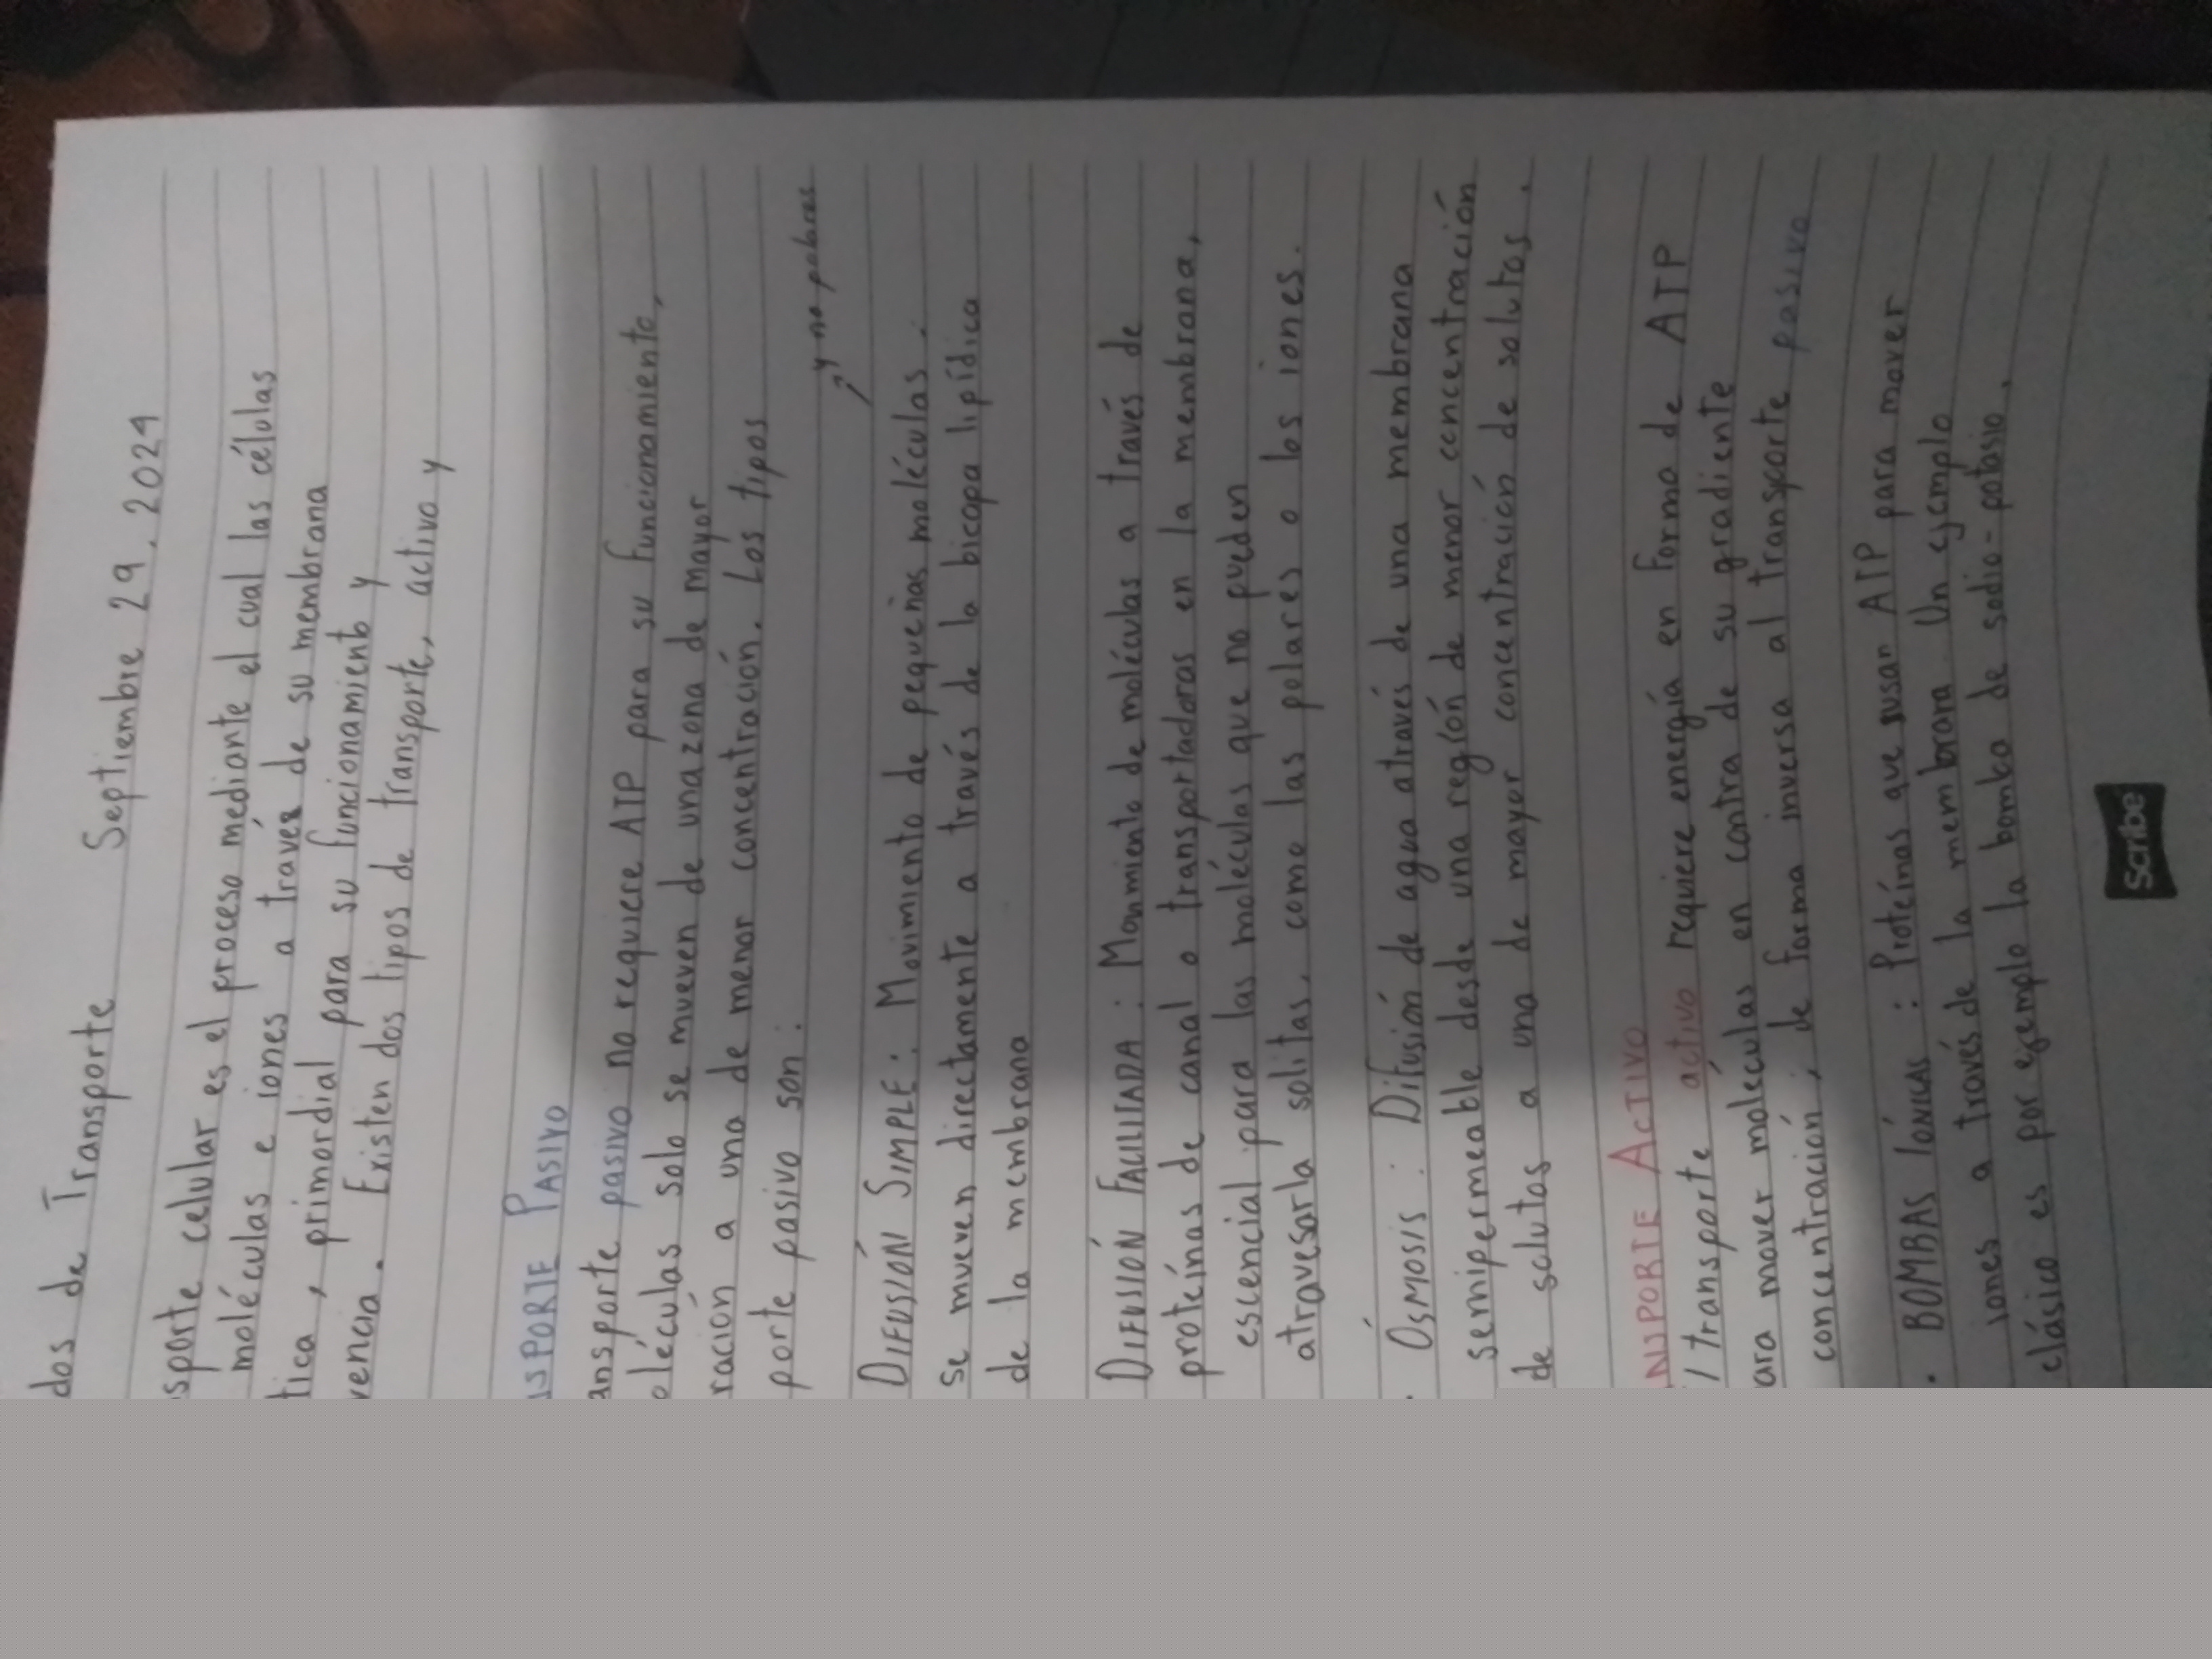 dos de Transporte Septiembre 29, 2024
sporte celular es el proceso mediante el cual las células
moléculas e iones a través de su membrana
tica, primordial para su funcionamiento y
vencia. Existen dos tipos de transporte, activo y
NSPORTE PASIVO
ansporte pasivo no requiere ATP para su funcionamiento,
oléculas solo se mueven de una zona de mayor
ración a una de menor concentración. Los tipos
porte pasivo son:
y no polares
DIFUSIÓN SIMPLE: Movimiento de pequeñas moléculas.
se mueven directamente a través de la bicapa lipídica
de la membrana
DIFUSIÓN FACILITADA: Movimiento de moléculas a través de
proteínas de canal o transportadoras en la membrana,
escencial para las moléculas que no pueden
atravesarla solitas, como las polares o los iones.
. ÓSMOSIS: Difusión de agua através de una membrana
semipermeable desde una región de menor concentración
de solutos a una de mayor concentración de solutos.
ANSPORTE ACTIVO
l transporte activo requiere energía en forma de ATP
ara mover moléculas en contra de su gradiente
concentración; de forma inversa al transporte pasivo
. BOMBAS IÓNICAS: Proteínas que usan ATP para mover
iones a través de la membrana. Un ejemplo
clásico es por ejemplo la bomba de sodio-potasio.
Scribe